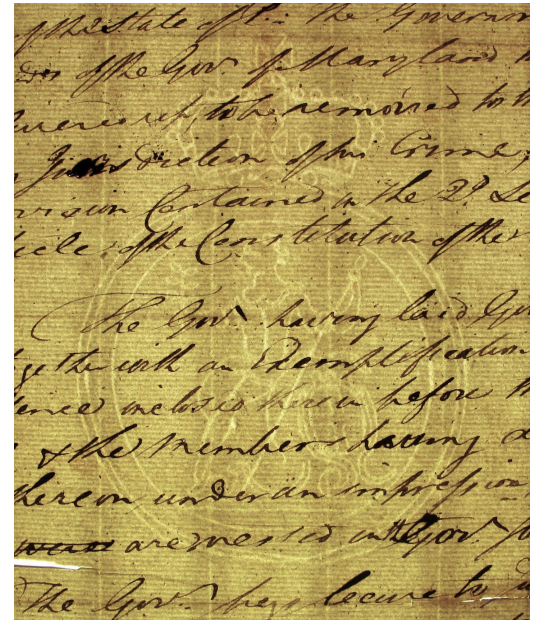 of the State of the Governm
of the Govr of Maryland
up, to be removed to th
Jurisdiction of his Crime,
vision Contained in the 2d Se
icle, of the Constitution of the
The Govr having laid Gov
gether with an Exemplification
dence inclosed therein before th
& the Members having
thereon, under an impression
are vested in the Govr
The Govr begs leave to